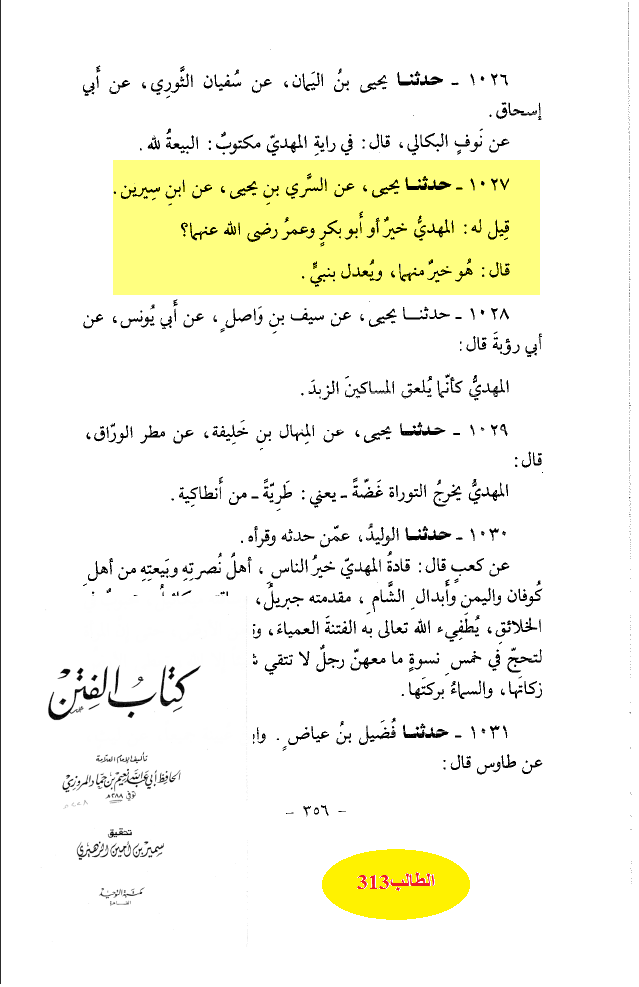 ١٠٢٦ ـ حدثنا يحيى بنُ اليَمان، عن سُفيان الثَّوري، عن أَبي
إسحاق.
عن نَوفٍ البكالي، قال: في رايةِ المهديّ مكتوبٌ: البيعةُ لله.
١٠٢٧ ـ حدثنا يحيى، عن السَّري بنِ يحيى، عن ابنِ سِيرين.
قِيل له: المهديُّ خيرٌ أو أَبو بكرٍ وعمرُ رضى الله عنهما؟
قال: هُو خيرٌ منهما، ويُعدل بنبيٍّ.
١٠٢٨ ـ حدثنا يحيى، عن سيف بنِ وَاصلٍ، عن أَبي يُونس، عن
أبي رؤبةَ قال:
المهديُّ كأنّما يُلعق المساكينَ الزبدَ.
١٠٢٩ ـ حدثنا يحيى، عن المِنهال بنِ خَلِيفة، عن مطر الورّاق،
قال:
المهديُّ يخرجُ التوراة غَضّةً ـ يعني: طَرِيّةً ـ من أَنطاكِية.
١٠٣٠ ـ حدثنا الوليدُ، عمّن حدثه وقرأه.
عن كعبٍ قال: قادةُ المهديّ خيرُ الناسِ، أهلُ نُصرتِهِ وبَيعتِهِ من أهلِ
كُوفان واليمن وأَبدالِ الشَّامِ، مقدمته جبريلُ،
الخلائقِ، يُطفِيء الله تعالى به الفتنةَ العمياءَ،
لتحجّ في خمسِ نسوةٍ ما معهنّ رجلٌ لا تتقي
زكاتَها، والسماءُ بركتَها.
١٠٣١ ـ حدثنا فُضَيل بنُ عياضٍ.
عن طاوس قال:
ـ ٣٥٦ ـ
كِتابُ الفِتَن
تأليف الإمام العلامة
الحافظ أبي عبد الله نعيم بن حماد المروزي
توفي ٢٨٨هـ
تحقيق
سمير بن أمين الزهيري
مكتبة التوحيد
القاهرة
الطالب313